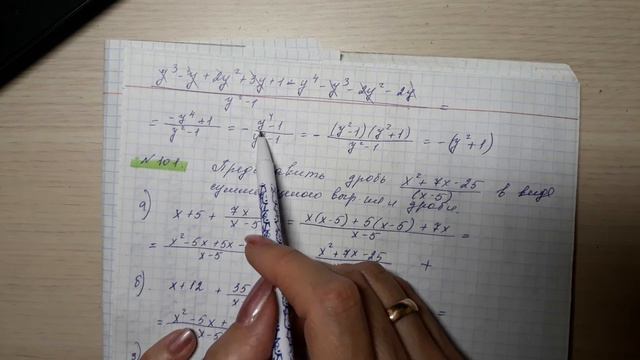 y³ - y + 2y² + 3y + 1 - y⁴ - y³ - 2y² - 2y / y² - 1 =
= -y⁴+1 / y²-1 = - y⁴-1 / y²-1 = - (y²-1)(y²+1) / y²-1 = -(y²+1)
№101. Представить дробь x²+7x-25 / (x-5) в виде
суммы выр или дроби.
а) x+5 + 7x / x-5 = x(x-5)+5(x-5)+7x / x-5 =
= x²-5x+5x- / x-5 x²+7x-25 +
б) x+12 + 35 / x =
= x²-5x+ / x-5
в)